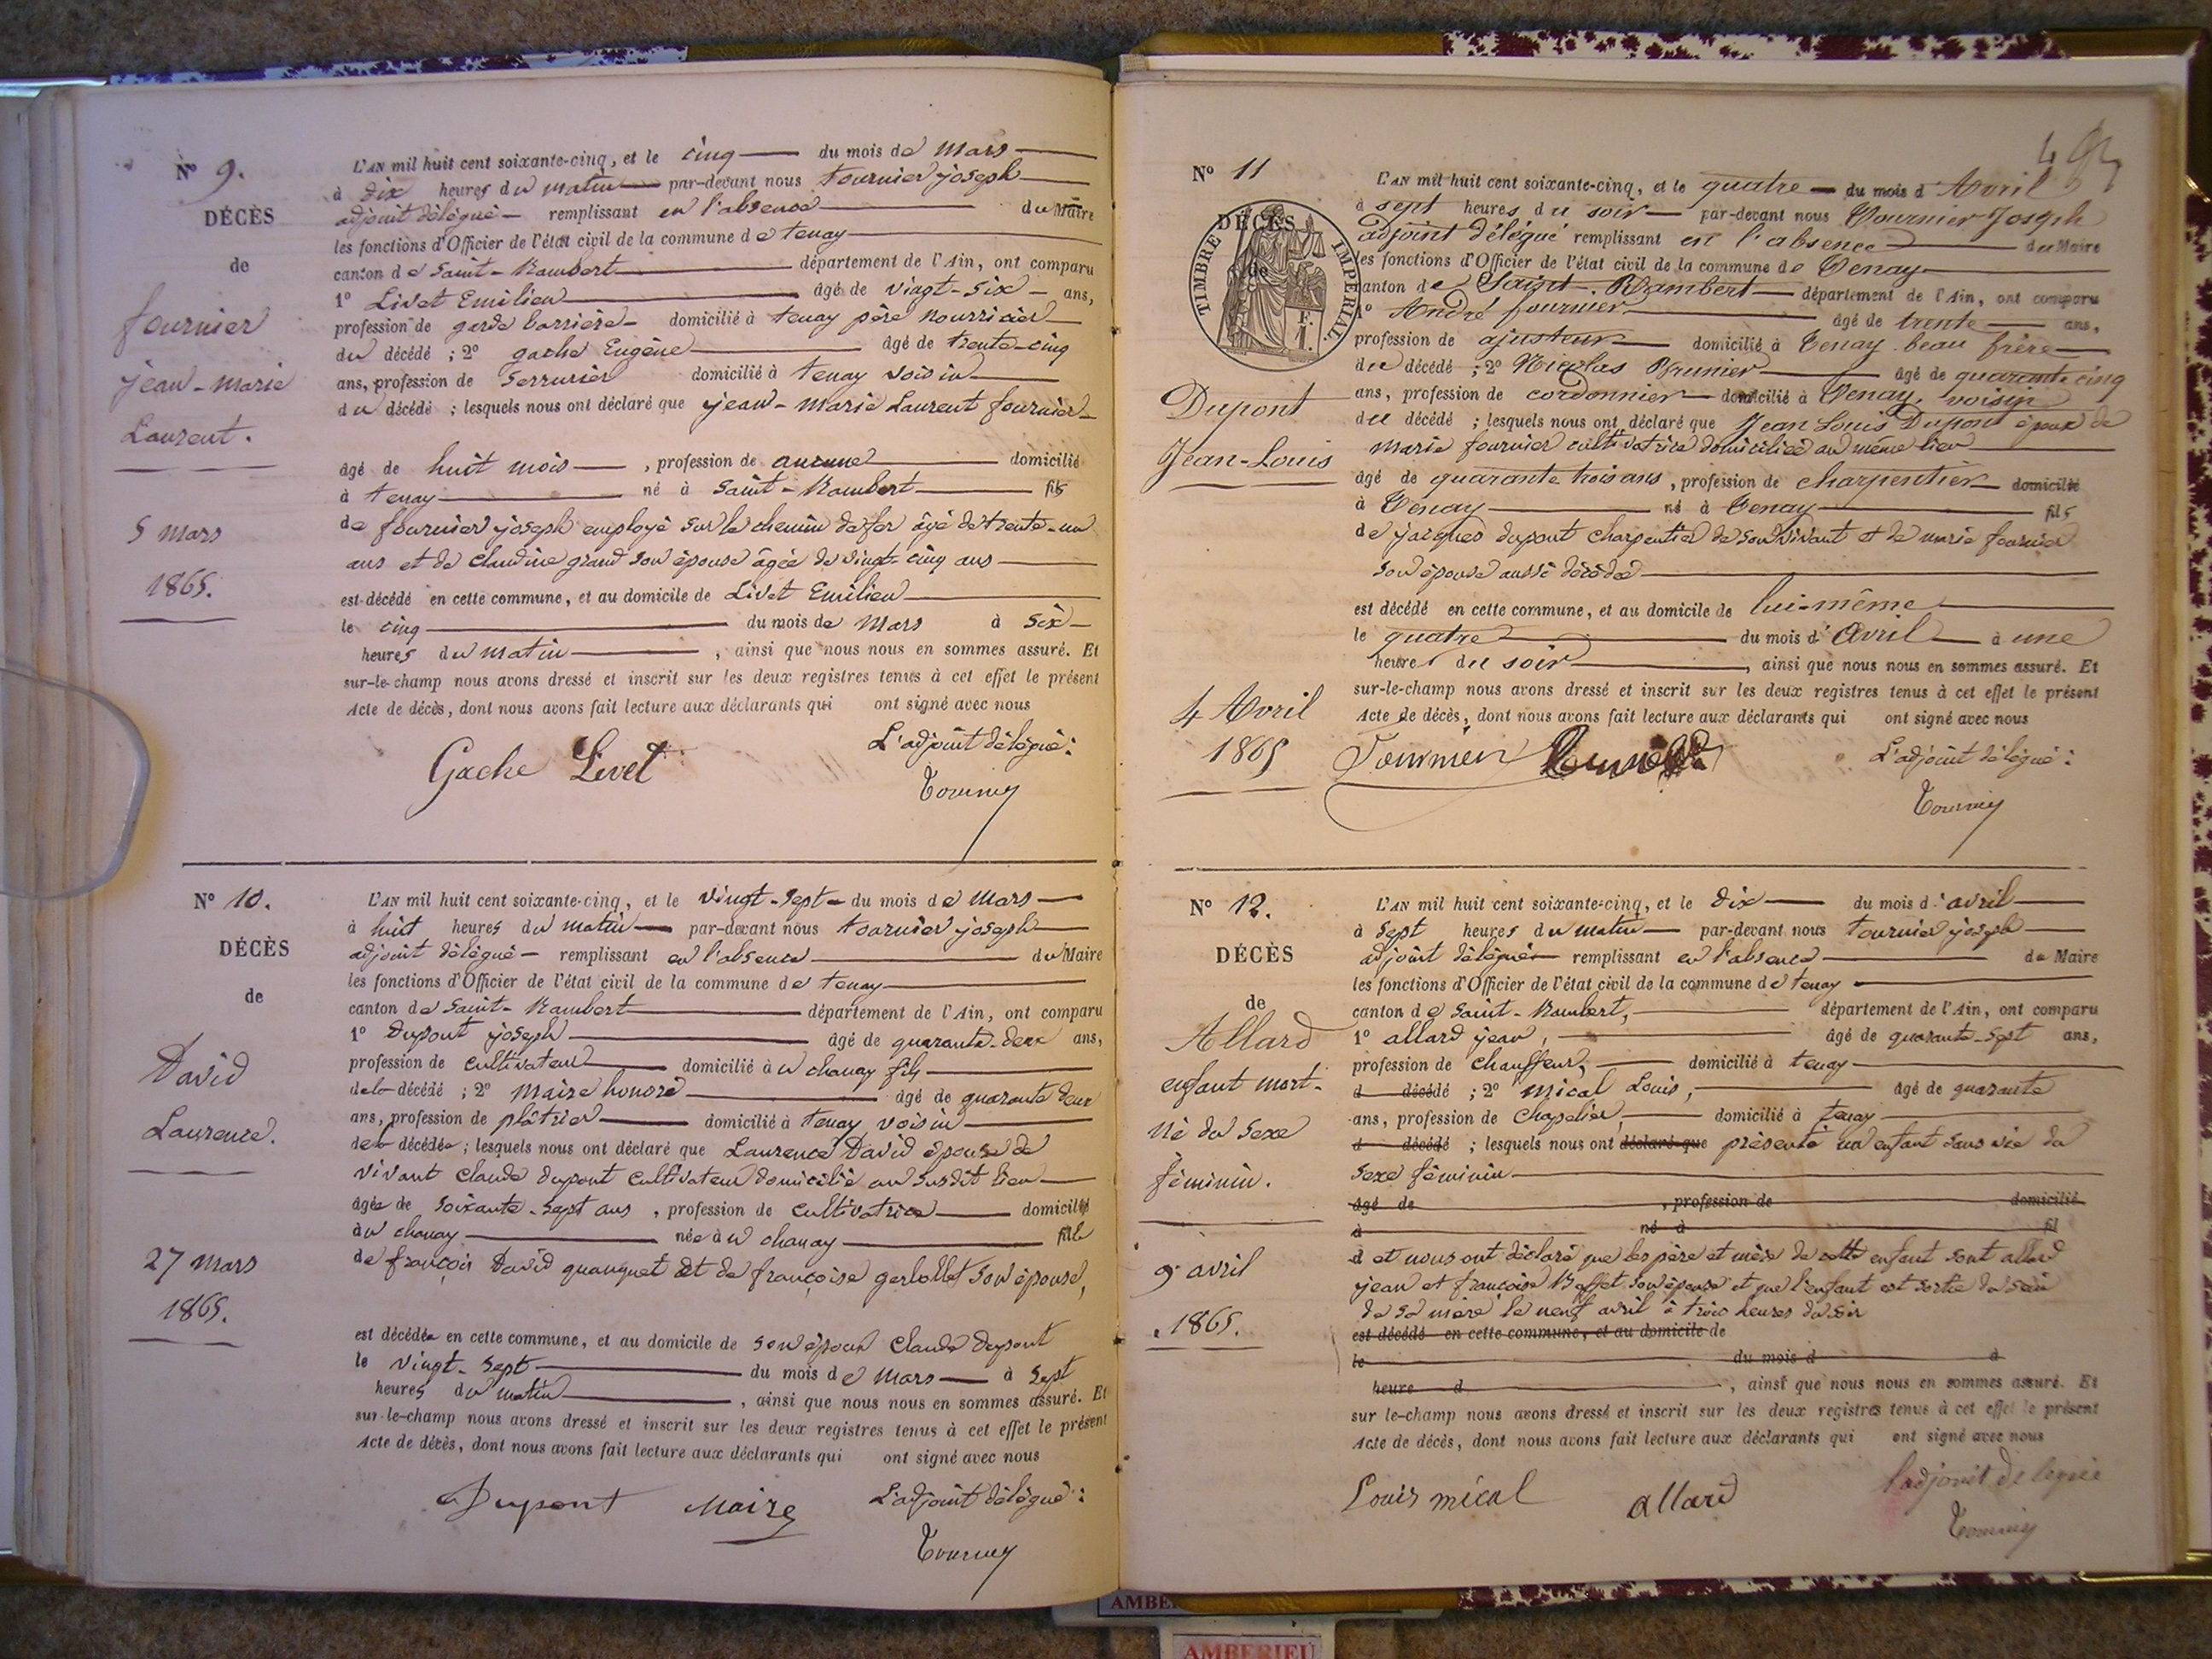 N° 9.
DÉCÈS
de
fournier
jean-marie
Laurent.
5 mars
1865.
L'AN mil huit cent soixante-cinq, et le cinq du mois de Mars
à dix heures du matin par-devant nous tournier joseph
adjoint délégué remplissant en l'absence du Maire
les fonctions d'Officier de l'état civil de la commune de tenay
canton de Saint-Rambert département de l'Ain, ont comparu
1° Livet Emilien âgé de vingt-six ans,
profession de garde barrière domicilié à tenay père nourricier
du décédé ; 2° gache Eugène âgé de trente-cinq
ans, profession de Serrurier domicilié à tenay voisin
du décédé ; lesquels nous ont déclaré que jean-marie Laurent fournier
âgé de huit mois, profession de aucune domicilié
à tenay né à Saint-Rambert fils
de fournier joseph employé sur le chemin de fer âgé de trente-un
ans et de claudine grand son épouse âgée de vingt-cinq ans
est décédé en cette commune, et au domicile de Livet Emilien
le cinq du mois de Mars à Six
heures du matin, ainsi que nous nous en sommes assuré. Et
sur-le-champ nous avons dressé et inscrit sur les deux registres tenus à cet effet le présent
Acte de décès, dont nous avons fait lecture aux déclarants qui ont signé avec nous
L'adjoint délégué :
Gache Livet
Tournier
N° 10.
DÉCÈS
de
David
Laurence.
27 mars
1865.
L'AN mil huit cent soixante-cinq, et le vingt-sept du mois de Mars
à huit heures du matin par-devant nous tournier joseph
adjoint délégué remplissant en l'absence du Maire
les fonctions d'Officier de l'état civil de la commune de tenay
canton de Saint-Rambert département de l'Ain, ont comparu
1° Dupont joseph âgé de quarante-deux ans,
profession de cultivateur domicilié à u chanay fils
de la décédé ; 2° Maire honoré âgé de quarante deux
ans, profession de plâtrier domicilié à tenay voisin
de la décédée ; lesquels nous ont déclaré que Laurence David épouse de
vivant Claude dupont cultivateur domicilié au susdit lieu
âgée de soixante-sept ans, profession de cultivatrice domicilié
à u chanay née à u chanay fille
de françois David quanquet et de françoise gerbollet son épouse,
est décédée en cette commune, et au domicile de son époux Claude Dupont
le vingt-sept du mois de Mars à sept
heures du matin, ainsi que nous nous en sommes assuré. Et
sur-le-champ nous avons dressé et inscrit sur les deux registres tenus à cet effet le présent
Acte de décès, dont nous avons fait lecture aux déclarants qui ont signé avec nous
Dupont Maire L'adjoint délégué :
Tournier
N° 11
DÉCÈS
de
TIMBRE IMPÉRIAL
Dupont
Jean-Louis
4 Avril
1865
L'AN mil huit cent soixante-cinq, et le quatre du mois d Avril
à sept heures du soir par-devant nous Tournier Joseph
adjoint délégué remplissant en l'absence du Maire
les fonctions d'Officier de l'état civil de la commune de Tenay
canton de Saint-Rambert département de l'Ain, ont comparu
1° André fournier âgé de trente ans,
profession de ajusteur domicilié à Tenay beau frère
du décédé ; 2° Nicolas Brunier âgé de quarante cinq
ans, profession de cordonnier domicilié à Tenay, voisin
du décédé ; lesquels nous ont déclaré que Jean Louis Dupont époux de
marie fournier cultivatrice domiciliée au même lieu
âgé de quarante trois ans, profession de charpentier domicilié
à Tenay né à Tenay fils
de jacques dupont charpentier de son vivant et de marie fournier
son épouse aussi décédée
est décédé en cette commune, et au domicile de lui-même
le quatre du mois d'Avril à une
heure du soir, ainsi que nous nous en sommes assuré. Et
sur-le-champ nous avons dressé et inscrit sur les deux registres tenus à cet effet le présent
Acte de décès, dont nous avons fait lecture aux déclarants qui ont signé avec nous
Fournier L'adjoint délégué :
Tournier
N° 12.
DÉCÈS
de
Allard
enfant mort-
né du sexe
féminin.
9 avril
1865.
L'AN mil huit cent soixante-cinq, et le dix du mois d'avril
à sept heures du matin par-devant nous tournier joseph
adjoint délégué remplissant en l'absence du Maire
les fonctions d'Officier de l'état civil de la commune de tenay
canton de Saint-Rambert, département de l'Ain, ont comparu
1° allard jean, âgé de quarante-sept ans,
profession de chauffeur, domicilié à tenay
d décédé ; 2° mical Louis, âgé de quarante
ans, profession de chapelier, domicilié à tenay
d décédé ; lesquels nous ont déclaré que présenté un enfant sans vie du
sexe féminin
âgé de , profession de domicilié
à né à fil
d et nous ont déclaré que les père et mère de cette enfant sont allard
jean et françoise son épouse et que l'enfant est sortie du sein
de sa mère le neuf avril à trois heures du soir
est décédé en cette commune, et au domicile de
le du mois d à
heure d , ainsi que nous nous en sommes assuré. Et
sur le-champ nous avons dressé et inscrit sur les deux registres tenus à cet effet le présent
Acte de décès, dont nous avons fait lecture aux déclarants qui ont signé avec nous
Louis mical allard l'adjoint délégué
Tournier
AMBERIEU